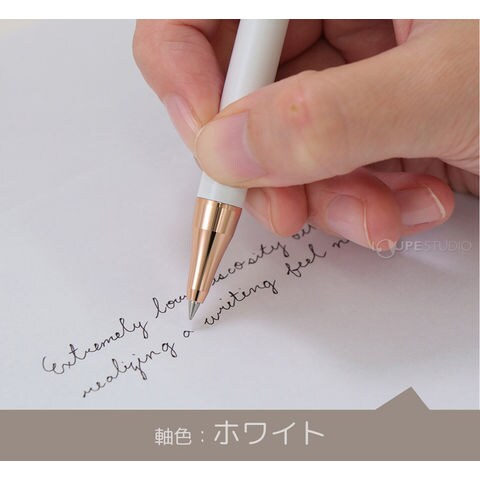 LOUPE STUDIO
Extremely low viscosity
realizing a writing feel
軸色：ホワイト